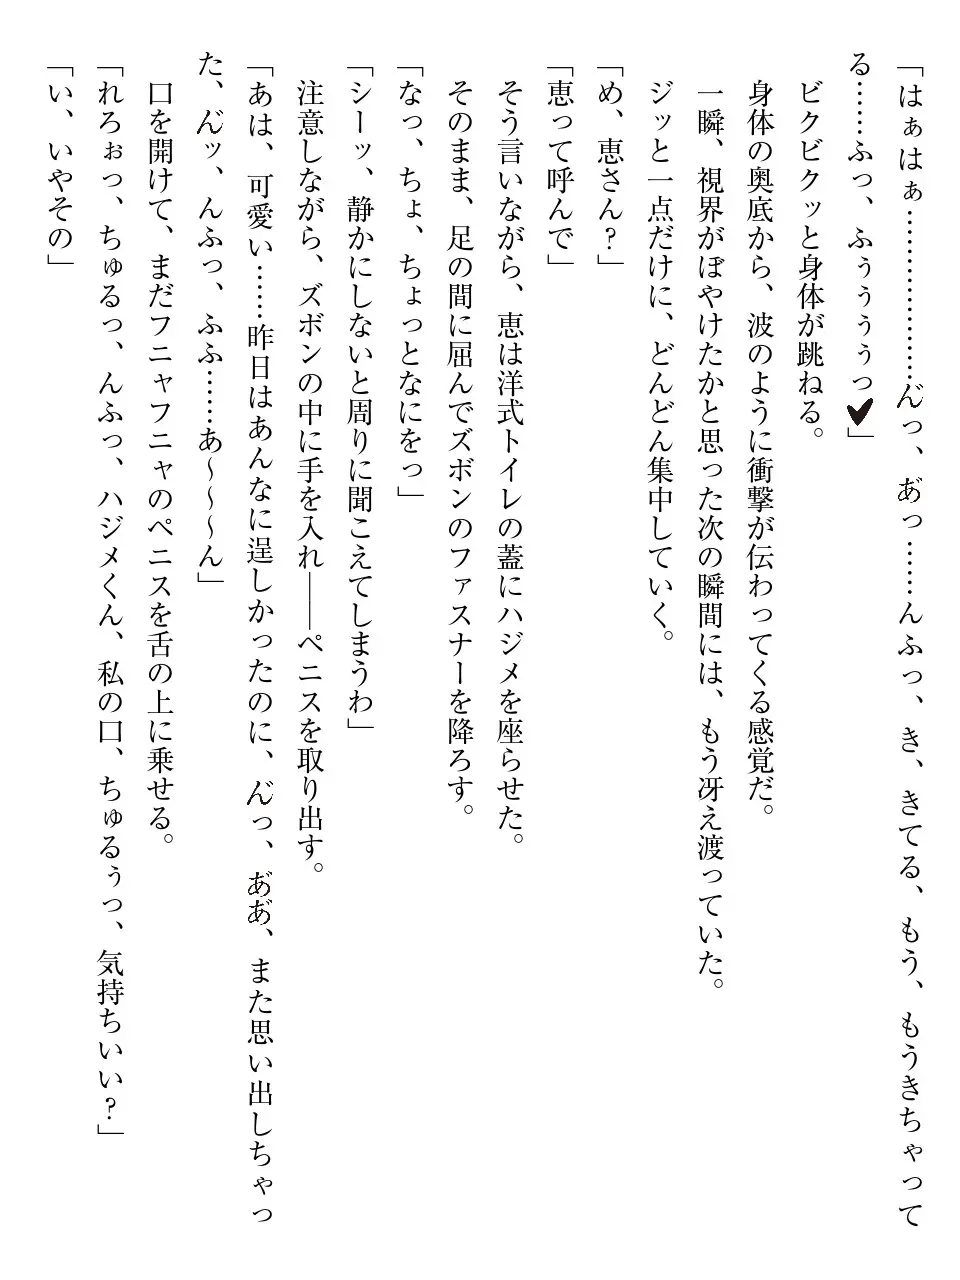 「はぁはぁ………………ん゛っ、あ゛っ……んふっ、き、きてる、もう、もうきちゃって
る……ふっ、ふぅぅぅっ♥」
ビクビクッと身体が跳ねる。
身体の奥底から、波のように衝撃が伝わってくる感覚だ。
一瞬、視界がぼやけたかと思った次の瞬間には、もう冴え渡っていた。
ジッと一点だけに、どんどん集中していく。
「め、恵さん？」
「恵って呼んで」
そう言いながら、恵は洋式トイレの蓋にハジメを座らせた。
そのまま、足の間に屈んでズボンのファスナーを降ろす。
「なっ、ちょ、ちょっとなにをっ」
「シーッ、静かにしないと周りに聞こえてしまうわ」
注意しながら、ズボンの中に手を入れ――ペニスを取り出す。
「あは、可愛い……昨日はあんなに逞しかったのに、ん゛っ、あ゛あ゛、また思い出しちゃっ
た、ん゛ッ、んふっ、ふふ……あ～～～ん」
口を開けて、まだフニャフニャのペニスを舌の上に乗せる。
「れろぉっ、ちゅるっ、んふっ、ハジメくん、私の口、ちゅるぅっ、気持ちいい？」
「い、いやその」